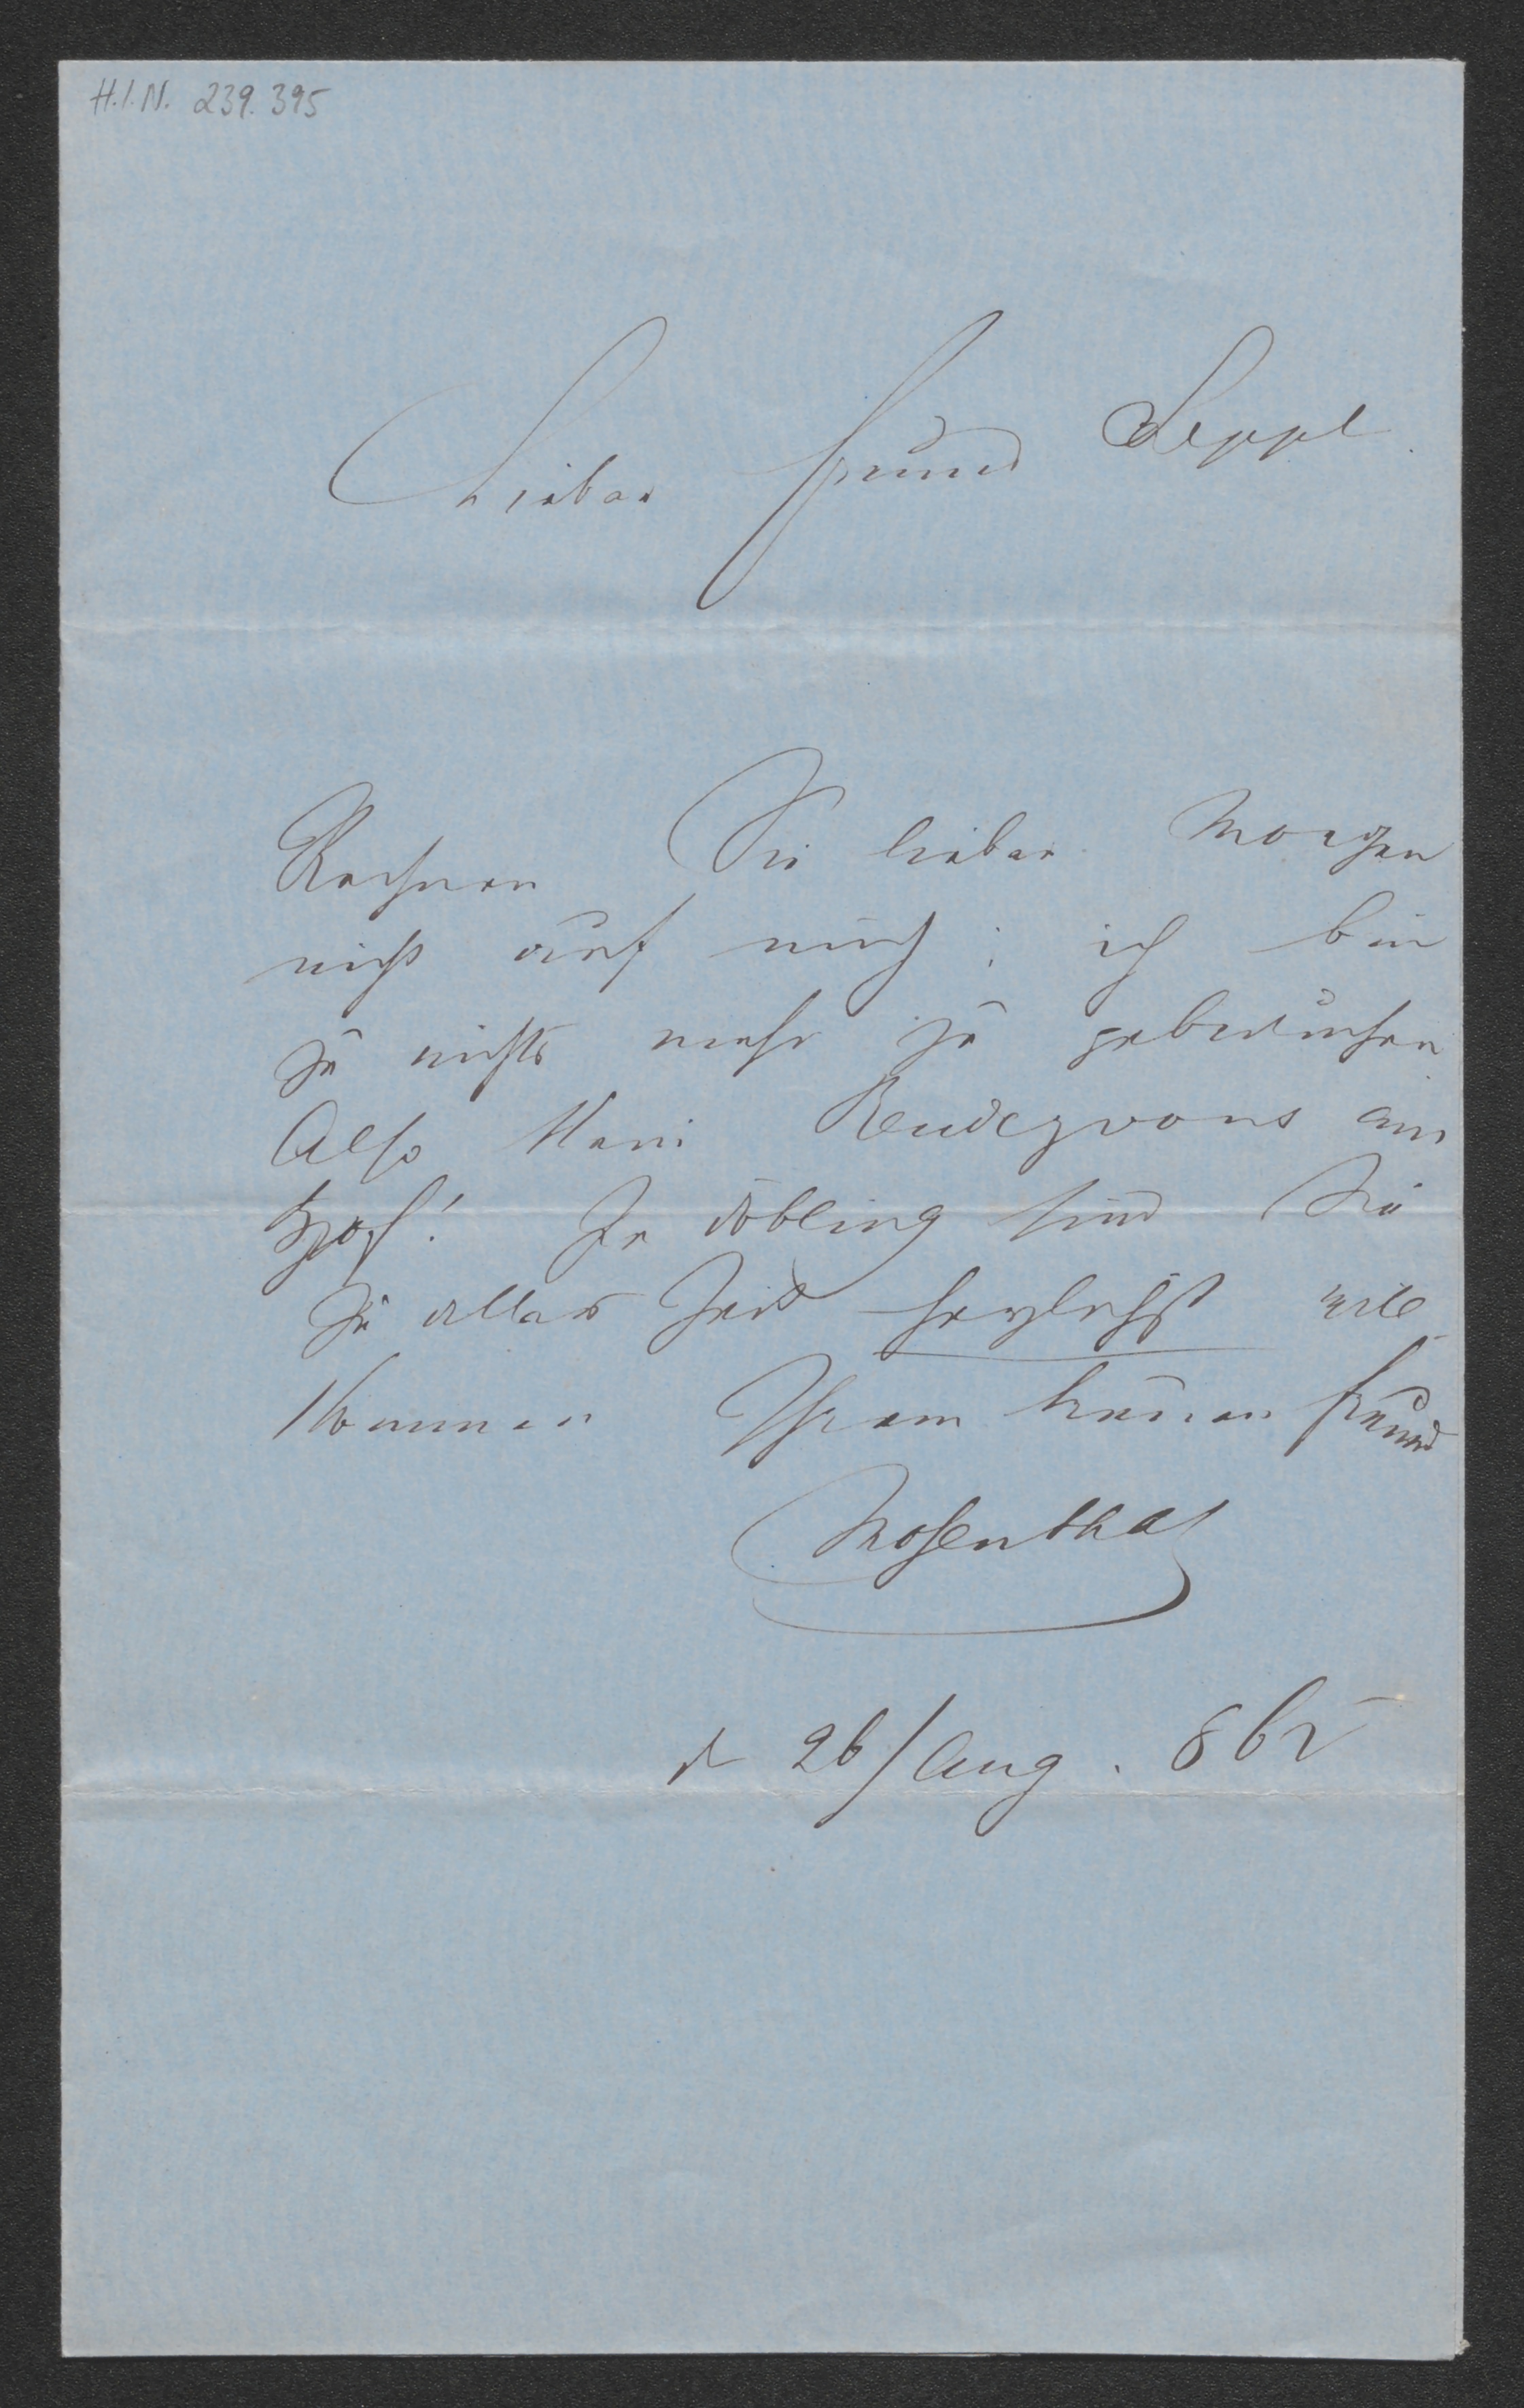 H.I.N. 239.395
Lieber Freund Seppl
Rechnen Sie lieber Morgen
nicht auf mich; ich bin
zu nichts mehr zu gebrauchen
Also kein Rendezvous am
Hof! In Döbling sind Sie
zu aller Zeit herzlichst will
kommen Ihrem treuen Freund
Mosenthal
d 26/Aug. 865